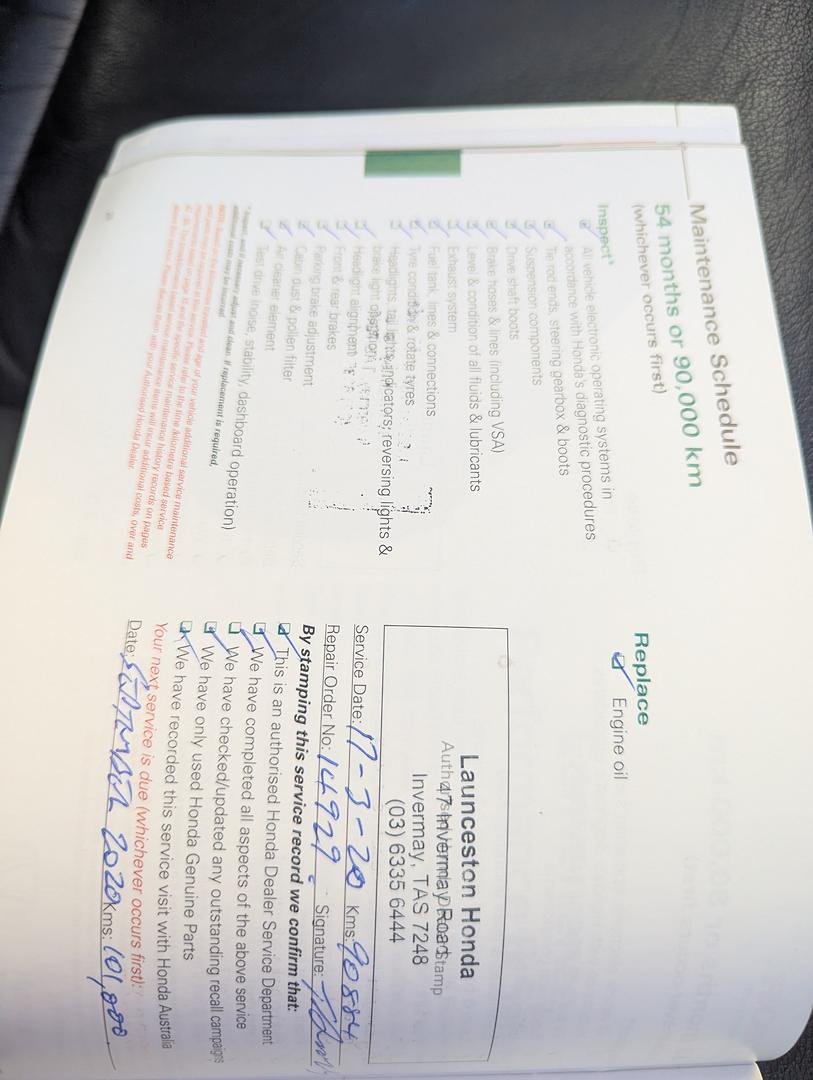 Maintenance Schedule
54 months or 90,000 km
(whichever occurs first)
Inspect*
All vehicle electronic operating systems in
accordance with Honda's diagnostic procedures
Tie rod ends, steering gearbox & boots
Suspension components
Drive shaft boots
Brake hoses & lines (including VSA)
Level & condition of all fluids & lubricants
Exhaust system
Fuel tank, lines & connections
Tyre condition & rotate tyres
Headlights, tail lights, indicators, reversing lights &
brake light operation
Headlight alignment
Front & rear brakes
Parking brake adjustment
Cabin dust & pollen filter
Air cleaner element
Test drive (noise, stability, dashboard operation)
* Inspect, and if necessary adjust and clean. If replacement is required,
additional costs may be incurred.
Replace
Engine oil
Launceston Honda
Authorised Stamp
47 Invermay Road
Invermay, TAS 7248
(03) 6335 6444
Service Date: 17-3-20 Kms: 90884
Repair Order No: 14929 Signature:
By stamping this service record we confirm that:
This is an authorised Honda Dealer Service Department
We have completed all aspects of the above service
We have checked/updated any outstanding recall campaigns
We have only used Honda Genuine Parts
We have recorded this service visit with Honda Australia
Your next service is due (whichever occurs first):
Date: SEPTEMBER 2020 Kms: 101,000